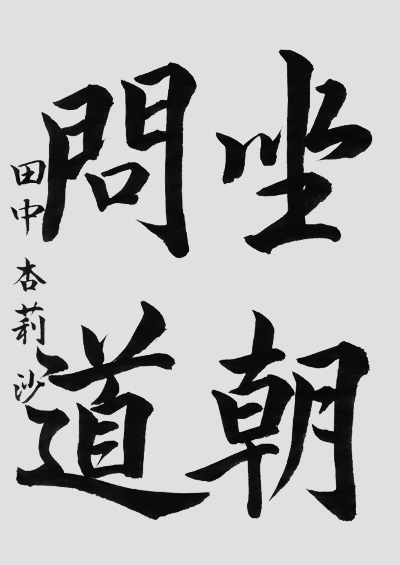 坐朝
問道
田中杏莉沙